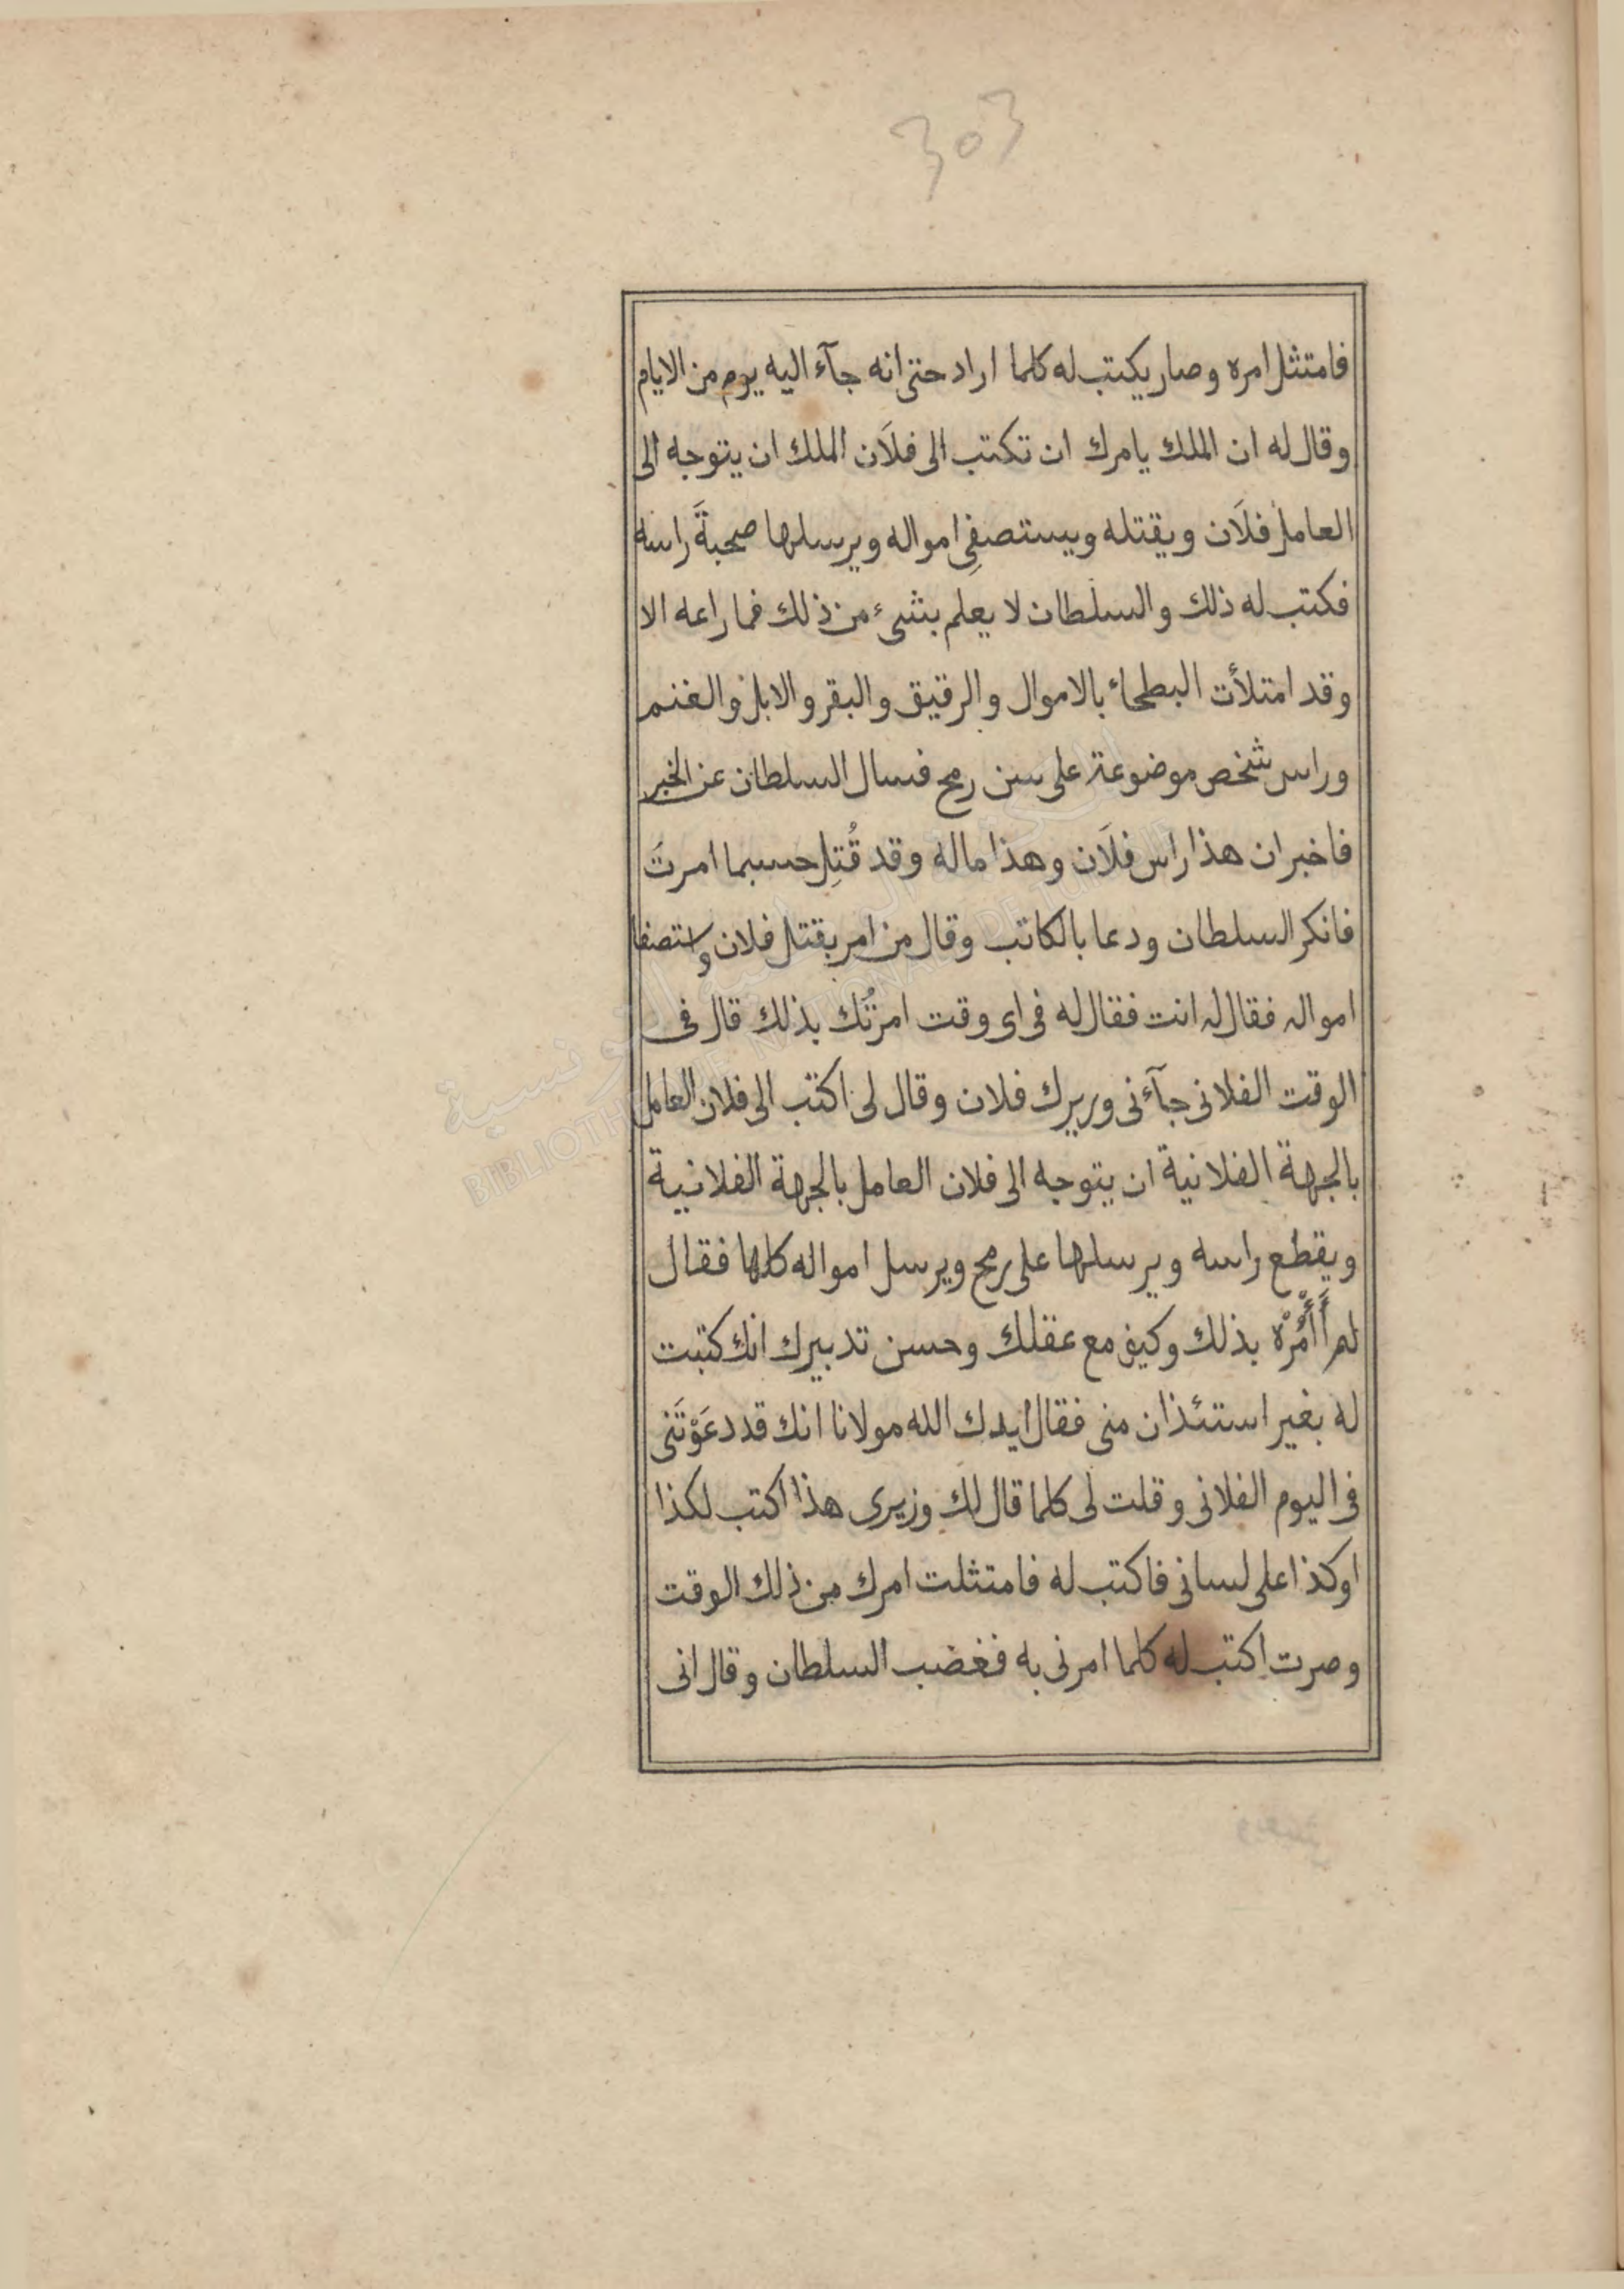 303
فامتثل امره وصار يكتب له كلما اراد حتى انه جآء اليه يوم من الايام
وقال له ان الملك يامرك ان تكتب الى فلَان الملك ان يتوجه الى
العامل فلَان ويقتله ويستصفِى امواله ويرسلها صحبةَ راسه
فكتب له ذلك والسلطان لا يعلم بشىء من ذلك فما راعه الا
وقد امتلأت البطحاء بالاموال والرقيق والبقر والابل والغنم
وراس شخص موضوعة على سن رمح فسال السلطان عن الخبر
فاخبر ان هذا راس فلَان وهذا ماله وقد قُتِل حسبما امرتَ
فانكر السلطان ودعا بالكاتب وقال من امر بقتل فلان واستصفا
امواله فقال له انت فقال له فى اى وقت امرتُك بذلك قال فى
الوقت الفلانى جآءنى وريرك فلان وقال لى اكتب الى فلان العامل
بالجهة الفلانية ان يتوجه الى فلان العامل بالجهة الفلانية
ويقطع راسه ويرسلها على رمح ويرسل امواله كلها فقال
لم أَأْمُرْه بذلك وكيف مع عقلك وحسن تدبيرك انك كتبت
له بغير استئذان منى فقال ايدك الله مولانا انك قد دعَوْتَنى
فى اليوم الفلانى وقلت لى كلما قال لك وزيرى هذا اكتب لكذا
اوكذا على لسانى فاكتب له فامتثلت امرك من ذلك الوقت
وصرت اكتب له كلما امرنى به فغضب السلطان وقال انى